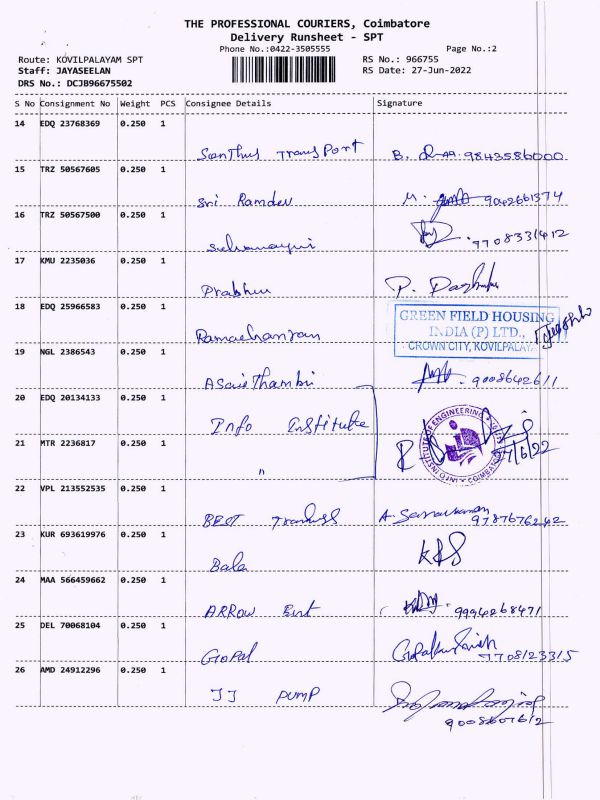 THE PROFESSIONAL COURIERS, Coimbatore
Delivery Runsheet - SPT
Phone No.:0422-3505555 Page No.:2
Route: KOVILPALAYAM SPT RS No.: 966755
Staff: JAYASEELAN RS Date: 27-Jun-2022
DRS No.: DCJB96675502
S No Consignment No Weight PCS Consignee Details Signature
14 EDQ 23768369 0.250 1
Santhus Transport B. 9843586000
15 TRZ 50567605 0.250 1
Sri Ramdev M. 9042661574
16 TRZ 50567500 0.250 1
7708331412
17 KMU 2235036 0.250 1
Prabhu P.
18 EDQ 25966583 0.250 1
GREEN FIELD HOUSING
INDIA (P) LTD.,
CROWN CITY, KOVILPALAY
Ramachanran
19 NGL 2386543 0.250 1
AsaiThambi 9008642611
20 EDQ 20134133 0.250 1
Info Institute
INSTITUTE OF ENGINEERING
COIMBATORE
21 MTR 2236817 0.250 1
" 27/6/22
22 VPL 213552535 0.250 1
BEST A. Saravanan
9787676242
23 KUR 693619976 0.250 1
Bala
24 MAA 566459662 0.250 1
ARROW Ent 9994268471
25 DEL 70068104 0.250 1
Gopal
7708123315
26 AMD 24912296 0.250 1
JJ PUMP
9008607612